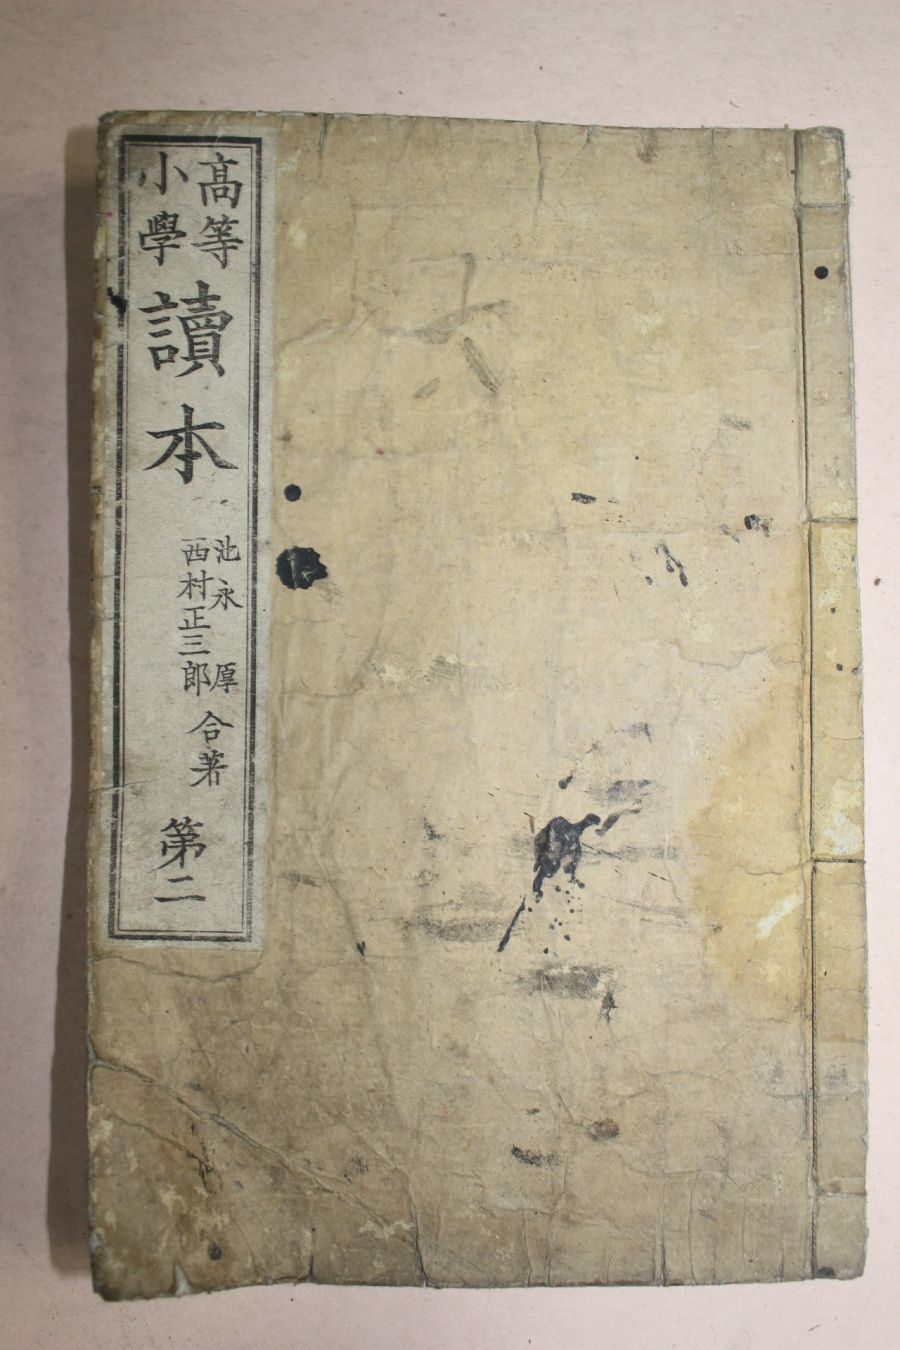 高等
小學
讀本
池永厚
西村正三郎
合著
第二